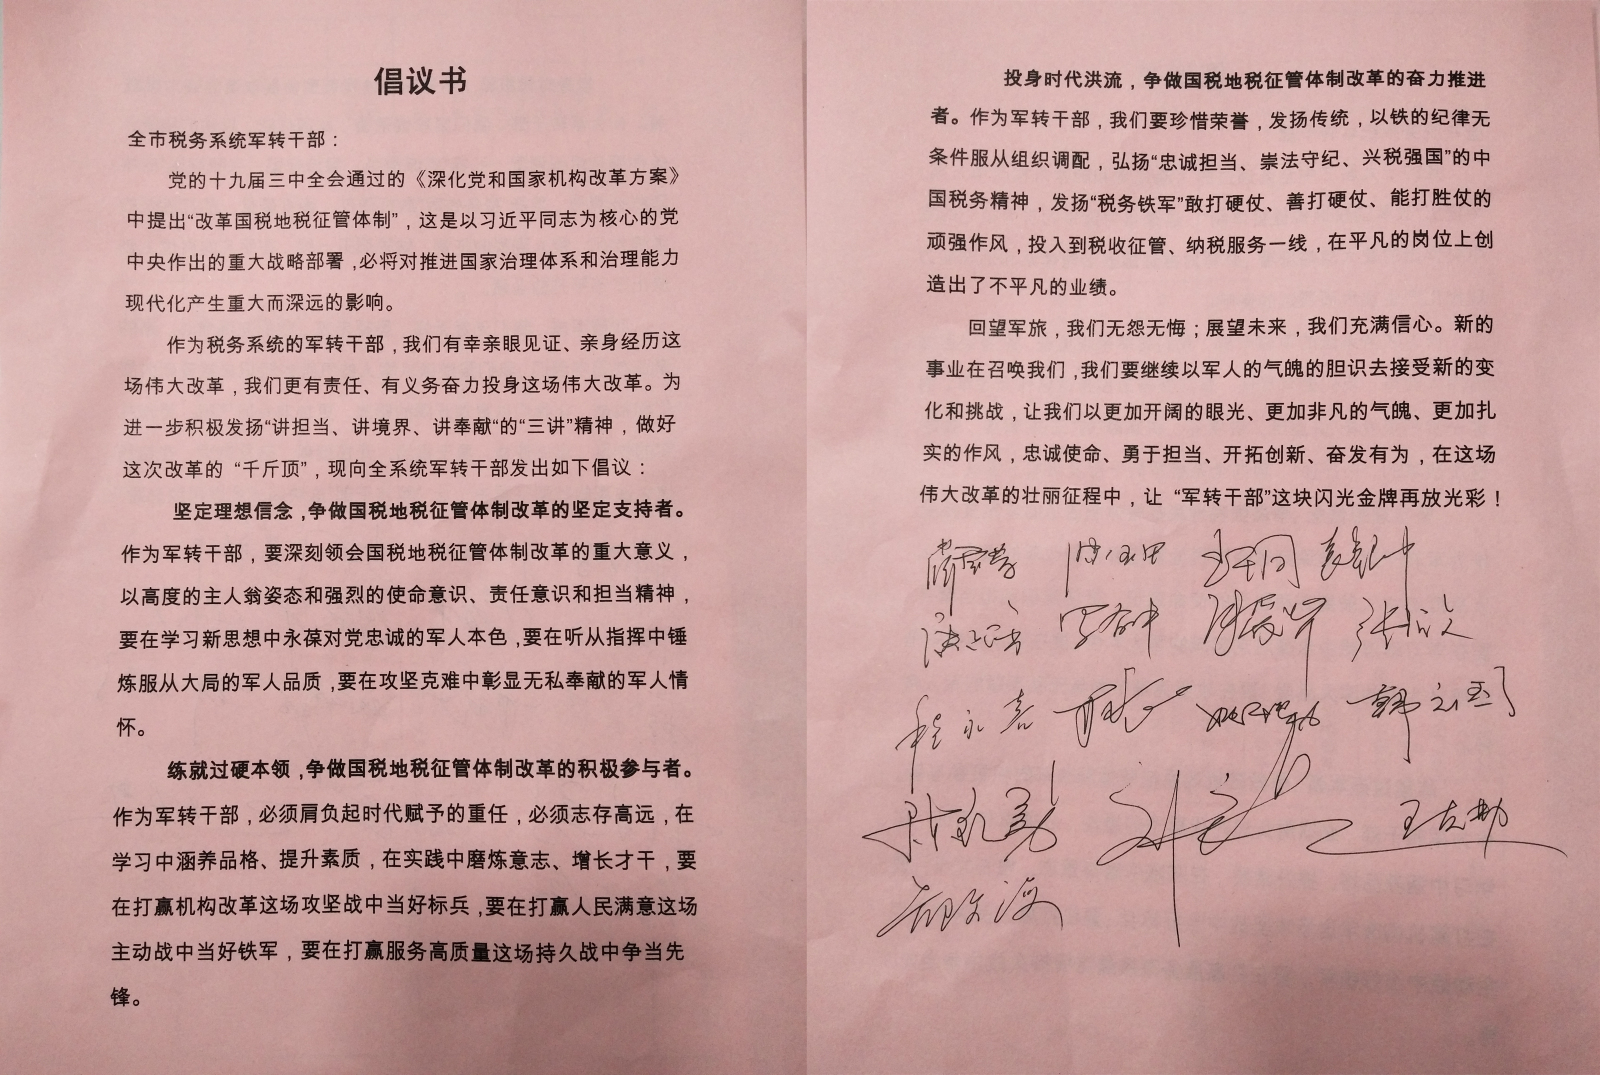 倡议书
全市税务系统军转干部：
党的十九届三中全会通过的《深化党和国家机构改革方案》
中提出“改革国税地税征管体制”，这是以习近平同志为核心的党
中央作出的重大战略部署,必将对推进国家治理体系和治理能力
现代化产生重大而深远的影响。
作为税务系统的军转干部,我们有幸亲眼见证、亲身经历这
场伟大改革，我们更有责任、有义务奋力投身这场伟大改革。为
进一步积极发扬“讲担当、讲境界、讲奉献“的“三讲”精神，做好
这次改革的 “千斤顶”，现向全系统军转干部发出如下倡议：
坚定理想信念,争做国税地税征管体制改革的坚定支持者。
作为军转干部，要深刻领会国税地税征管体制改革的重大意义，
以高度的主人翁姿态和强烈的使命意识、责任意识和担当精神，
要在学习新思想中永葆对党忠诚的军人本色,要在听从指挥中锤
炼服从大局的军人品质,要在攻坚克难中彰显无私奉献的军人情
怀。
练就过硬本领,争做国税地税征管体制改革的积极参与者。
作为军转干部，必须肩负起时代赋予的重任，必须志存高远，在
学习中涵养品格、提升素质，在实践中磨炼意志、增长才干，要
在打赢机构改革这场攻坚战中当好标兵,要在打赢人民满意这场
主动战中当好铁军，要在打赢服务高质量这场持久战中争当先
锋。
投身时代洪流，争做国税地税征管体制改革的奋力推进
者。作为军转干部，我们要珍惜荣誉，发扬传统，以铁的纪律无
条件服从组织调配，弘扬“忠诚担当、崇法守纪、兴税强国”的中
国税务精神，发扬“税务铁军”敢打硬仗、善打硬仗、能打胜仗的
顽强作风，投入到税收征管、纳税服务一线，在平凡的岗位上创
造出了不平凡的业绩。
回望军旅，我们无怨无悔；展望未来，我们充满信心。新的
事业在召唤我们,我们要继续以军人的气魄的胆识去接受新的变
化和挑战，让我们以更加开阔的眼光、更加非凡的气魄、更加扎
实的作风，忠诚使命、勇于担当、开拓创新、奋发有为，在这场
伟大改革的壮丽征程中，让 “军转干部”这块闪光金牌再放光彩！
程永嘉